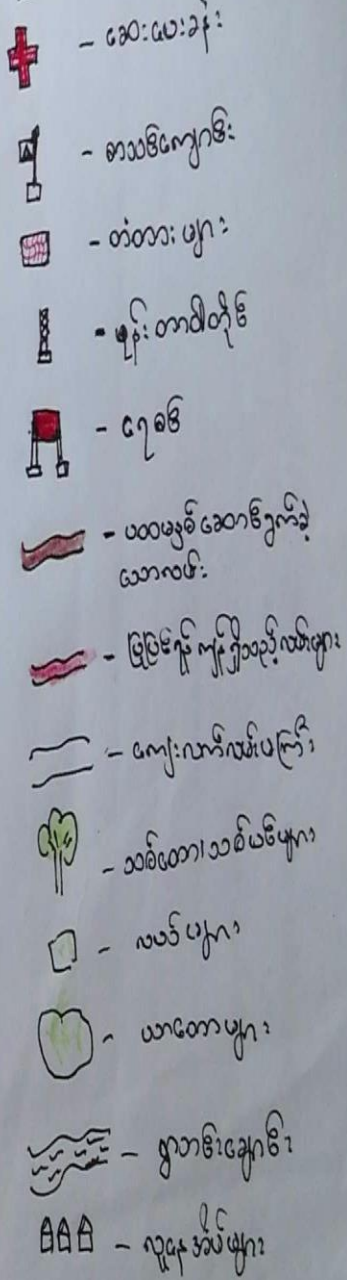 - ဆေးပေးခန်း
- စာသင်ကျောင်း
- တံတားများ
- ဖုန်းတာဝါတိုင်
- ရေစင်
- ပထမနှစ်ဆောင်ရွက်ခဲ့
သောလမ်း
- ပြုပြင်ရန်ကျန်ရှိသည့်လမ်းများ
- ကျေးလက်လမ်းမကြီး
- သစ်တော၊သစ်ပင်များ
- လယ်များ
- ယာတောများ
- ရွာဘေးချောင်း
- လူနေအိမ်များ